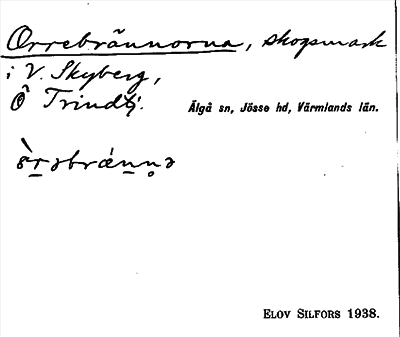 Orrebrännorna, skogsmark
i V. Skyberg,
Ö Trindtj.
Älgå sn, Jösse hd, Värmlands län.
ELOV SILFORS 1938.